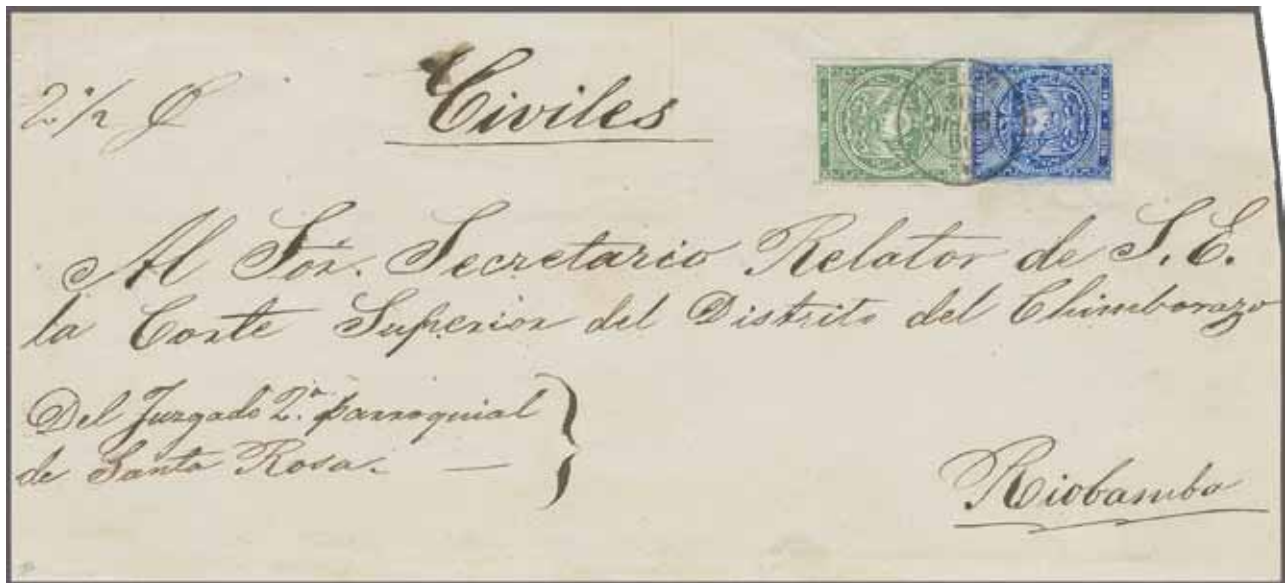 2 1/2
Civiles
Al Sōr. Secretario Relator de S. E.
la Corte Superior del Distrito del Chimborazo
Del Juzgado 2.º parroquial
de Santa Rosa. —
Riobamba